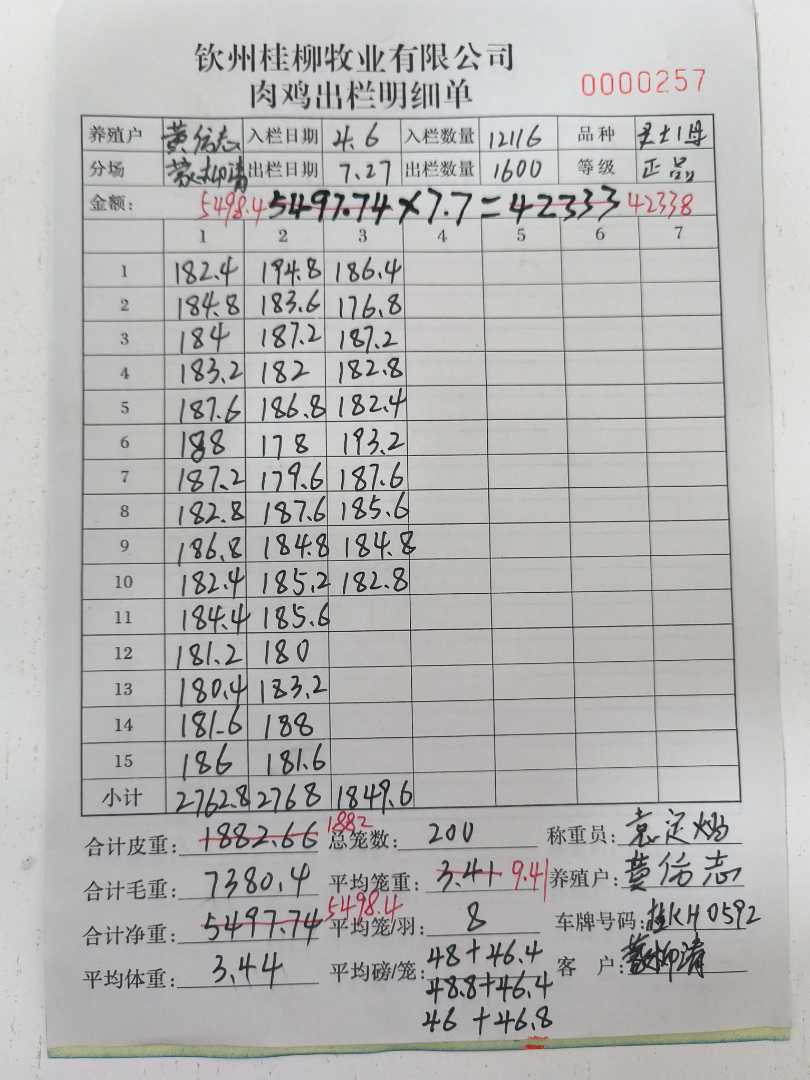 钦州桂柳牧业有限公司
肉鸡出栏明细单
0000257
养殖户 黄信志 入栏日期 4.6 入栏数量 12116 品种
分场 蒙柳清 出栏日期 7.27 出栏数量 1600 等级 正品
金额: 5498.4 5497.74×7.7=42333 42338
1 2 3 4 5 6 7
1 182.4 194.8 186.4
2 184.8 183.6 176.8
3 184 187.2 187.2
4 183.2 182 182.8
5 187.6 186.8 182.4
6 188 178 193.2
7 187.2 179.6 187.6
8 182.8 187.6 185.6
9 186.8 184.8 184.8
10 182.4 185.2 182.8
11 184.4 185.6
12 181.2 180
13 180.4 183.2
14 181.6 188
15 186 181.6
小计 2762.8 2768 1849.6
合计皮重: 1882.66 1882 总笼数: 200 称重员:
合计毛重: 7380.4 平均笼重: 3.41 9.41 养殖户: 黄信志
合计净重: 5497.74 5498.4 平均笼/羽: 8 车牌号码: 桂KH0592
平均体重: 3.44 平均磅/笼: 48+46.4 客 户: 蒙柳清
48.8+46.4
46+46.8